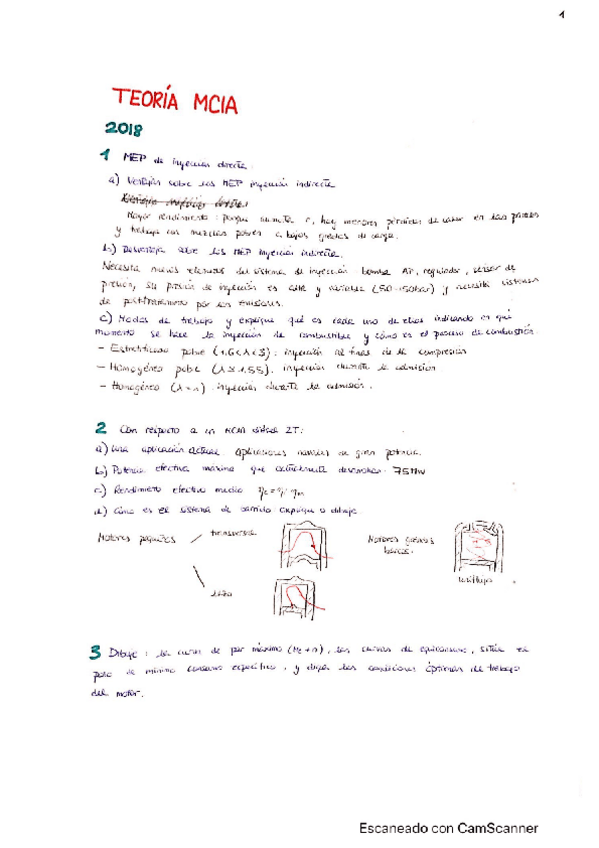 1
TEORÍA MCIA
2018
1 MEP de inyección directa:
a) Ventajas sobre los MEP inyección indirecta
Mayor rendimiento: porque aumenta r, hay menores pérdidas de calor en las paredes
y trabaja con mezclas pobres a bajos grados de carga.
b) Desventaja sobre los MEP inyección indirecta.
Necesita nuevos elementos del sistema de inyección: bomba AP, regulador, sensor de
presión, su presión de inyección es alta y variable (50-150bar) y necesita sistemas
de postratamiento por las emisiones.
c) Modos de trabajo y explique qué es cada uno de ellos indicando en qué
momento se hace la inyección de combustible y cómo es el proceso de combustión.
- Estratificado pobre (1.6<λ<3): inyección al final de la compresión
- Homogéneo pobre (λ≈1.55): inyección durante la admisión
- Homogéneo (λ=1): inyección durante la admisión.
2 Con respecto a los MCIA diésel 2T:
a) Una aplicación actual: aplicaciones navales de gran potencia.
b) Potencia efectiva máxima que actualmente desarrollan: 75 MW
c) Rendimiento efectivo medio
d) Cómo es el sistema de barrido: explique o dibuje.
Motores pequeños
transversal
lazo
Motores grandes
barcos:
uniflujo
3 Dibuje: la curva de par máximo (Me-n), las curvas de isoconsumo, sitúe el
punto de mínimo consumo específico, y dibuje las condiciones óptimas de trabajo
del motor.
Escaneado con CamScanner